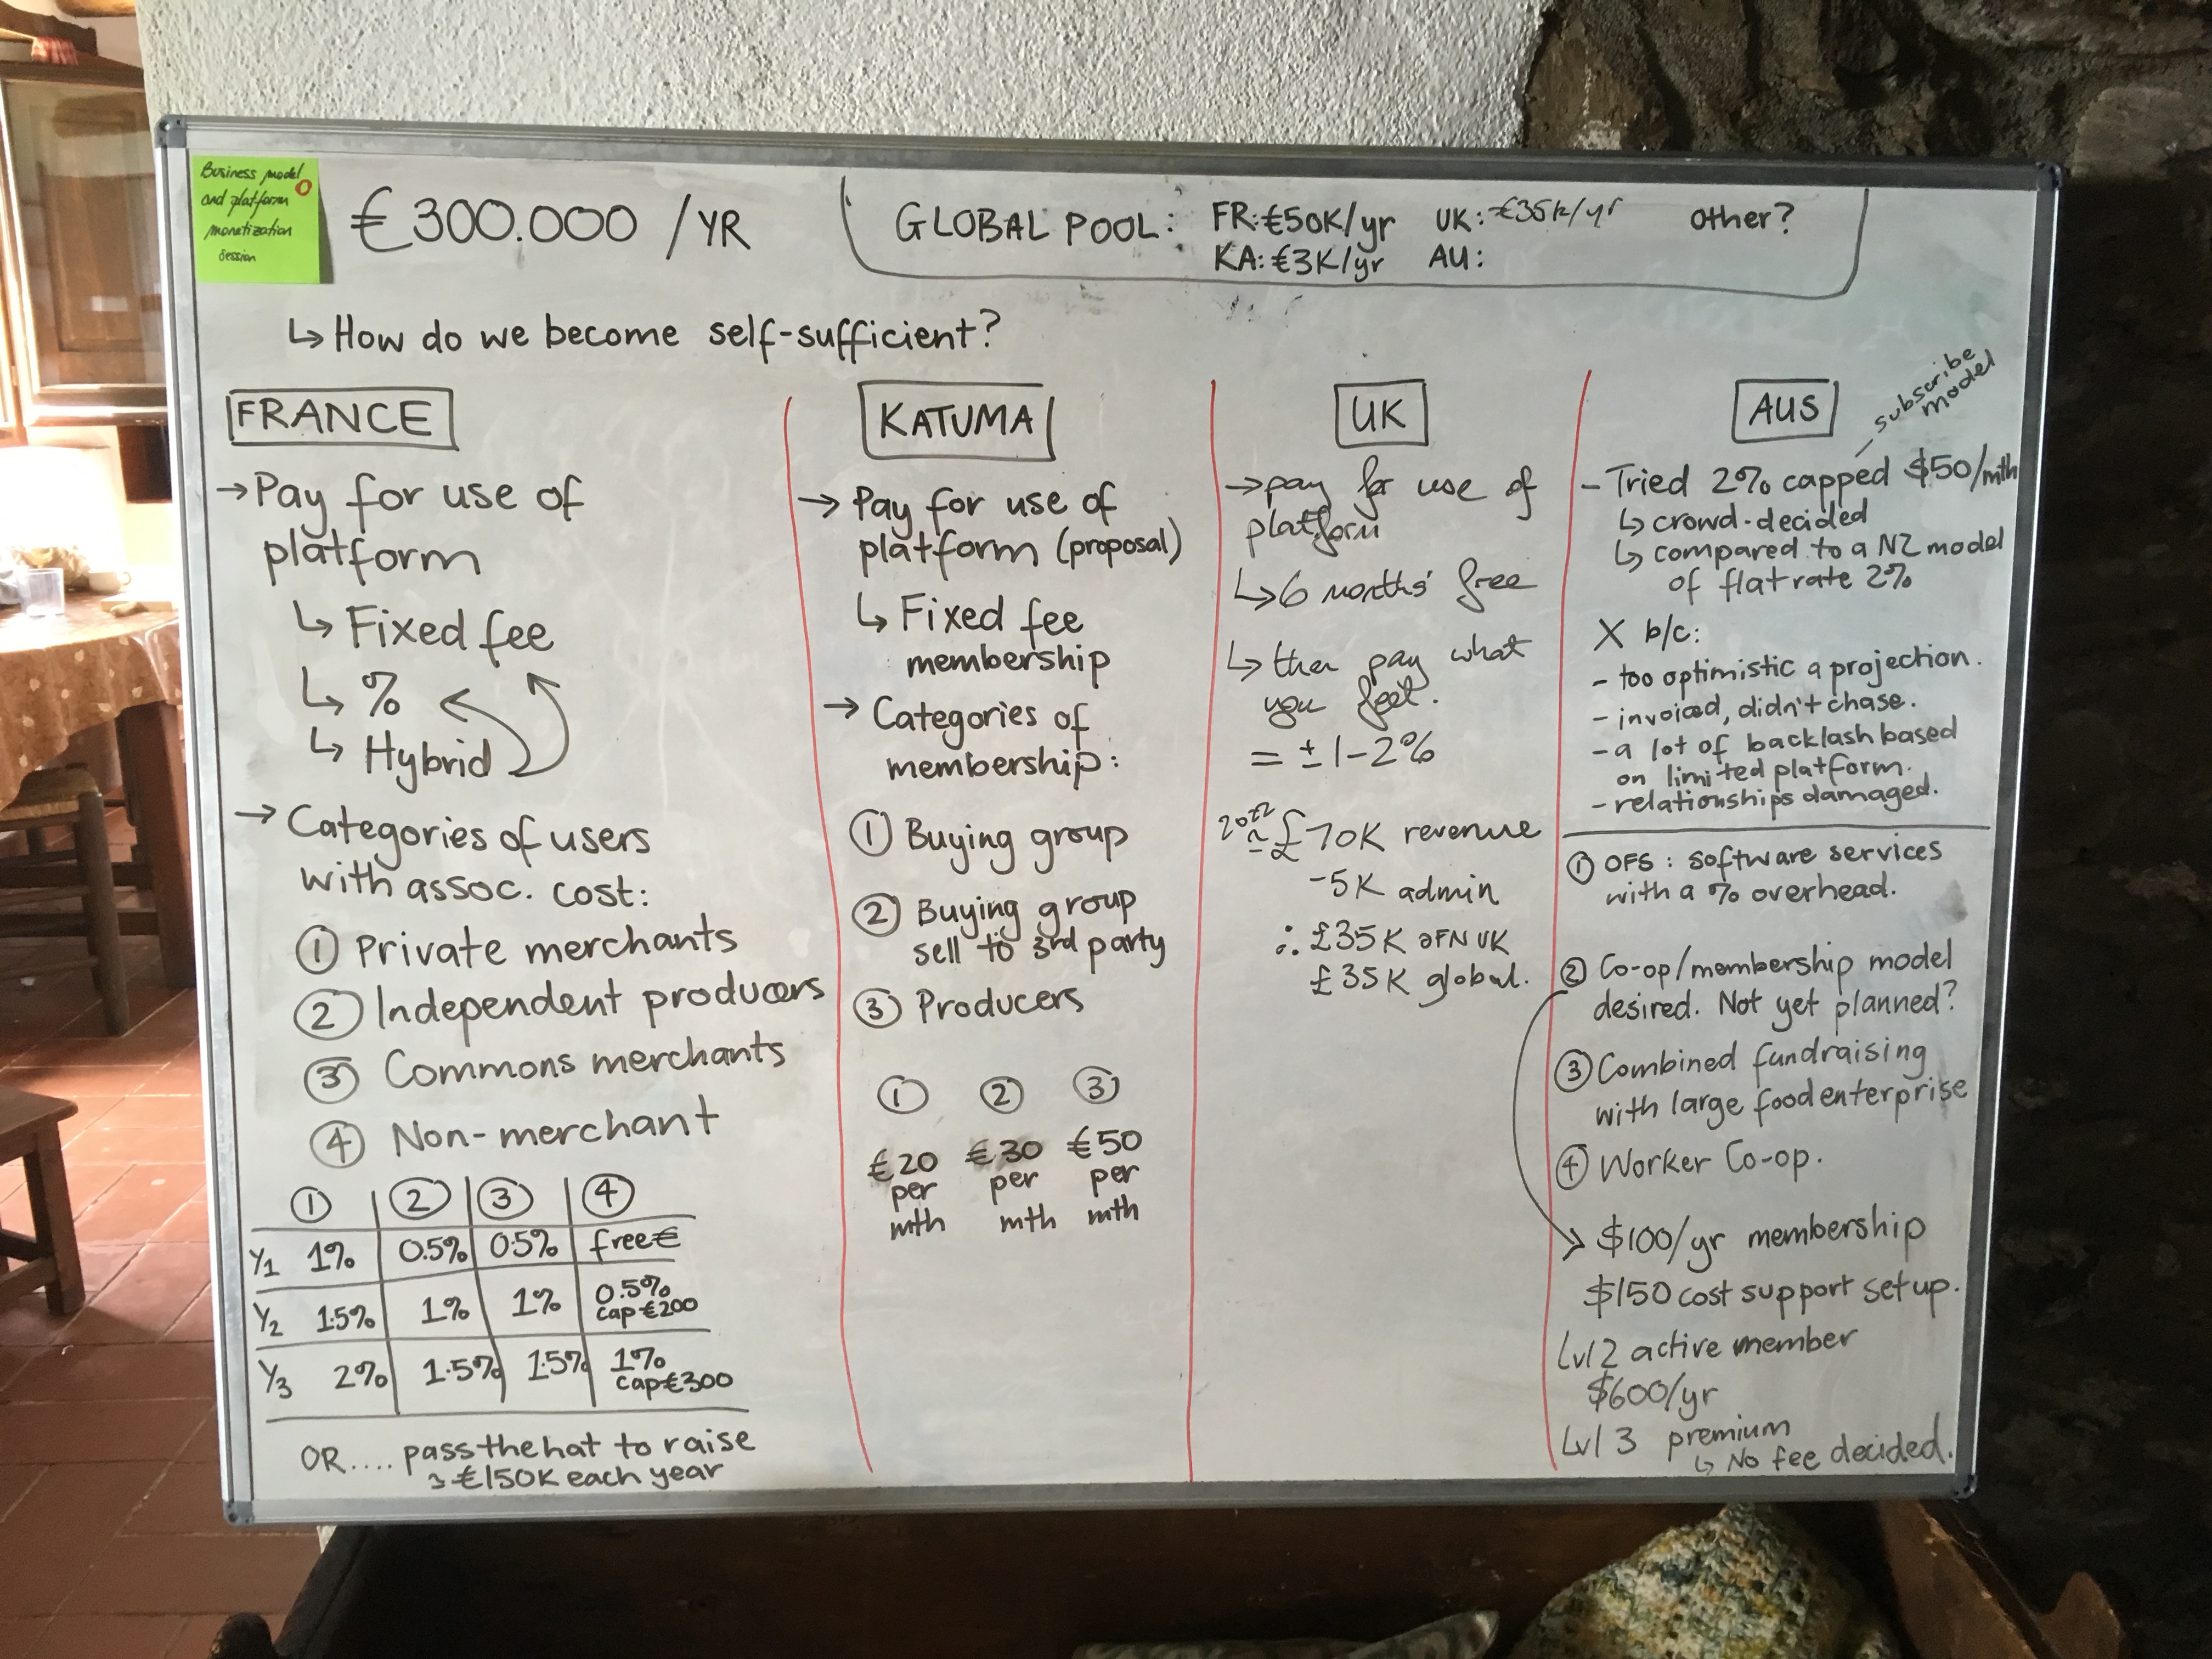 Business model
and platform
monetization
session
€300.000 /YR
GLOBAL POOL: FR: €50K/yr UK: €35K/yr Other?
KA: €3K/yr AU:
↳ How do we become self-sufficient?
FRANCE
→ Pay for use of
platform
↳ Fixed fee
↳ %
↳ Hybrid
→ Categories of users
with assoc. cost:
① Private merchants
② Independent producers
③ Commons merchants
④ Non-merchant
① ② ③ ④
Y1 1% 0.5% 0.5% free€
Y2 1.5% 1% 1% 0.5%
cap €200
Y3 2% 1.5% 1.5% 1%
cap €300
OR.... pass the hat to raise
€150K each year
KATUMA
→ Pay for use of
platform (proposal)
↳ Fixed fee
membership
→ Categories of
membership:
① Buying group
② Buying group
sell to 3rd party
③ Producers
① ② ③
€20 €30 €50
per per per
mth mth mth
UK
→ pay for use of
platform
↳ 6 months' free
↳ then pay what
you feel.
= ± 1-2%
≃ £70K revenue
-5K admin
∴ £35K OFN UK
£35K global.
AUS
subscribe
model
- Tried 2% capped $50/mth
↳ crowd-decided
↳ compared to a NZ model
of flat rate 2%
X b/c:
- too optimistic a projection.
- invoiced, didn't chase.
- a lot of backlash based
on limited platform.
- relationships damaged.
① OFS: software services
with a % overhead.
② Co-op/membership model
desired. Not yet planned?
③ Combined fundraising
with large food enterprise
④ Worker Co-op.
$100/yr membership
$150 cost support set up.
Lvl 2 active member
$600/yr
Lvl 3 premium
↳ No fee decided.